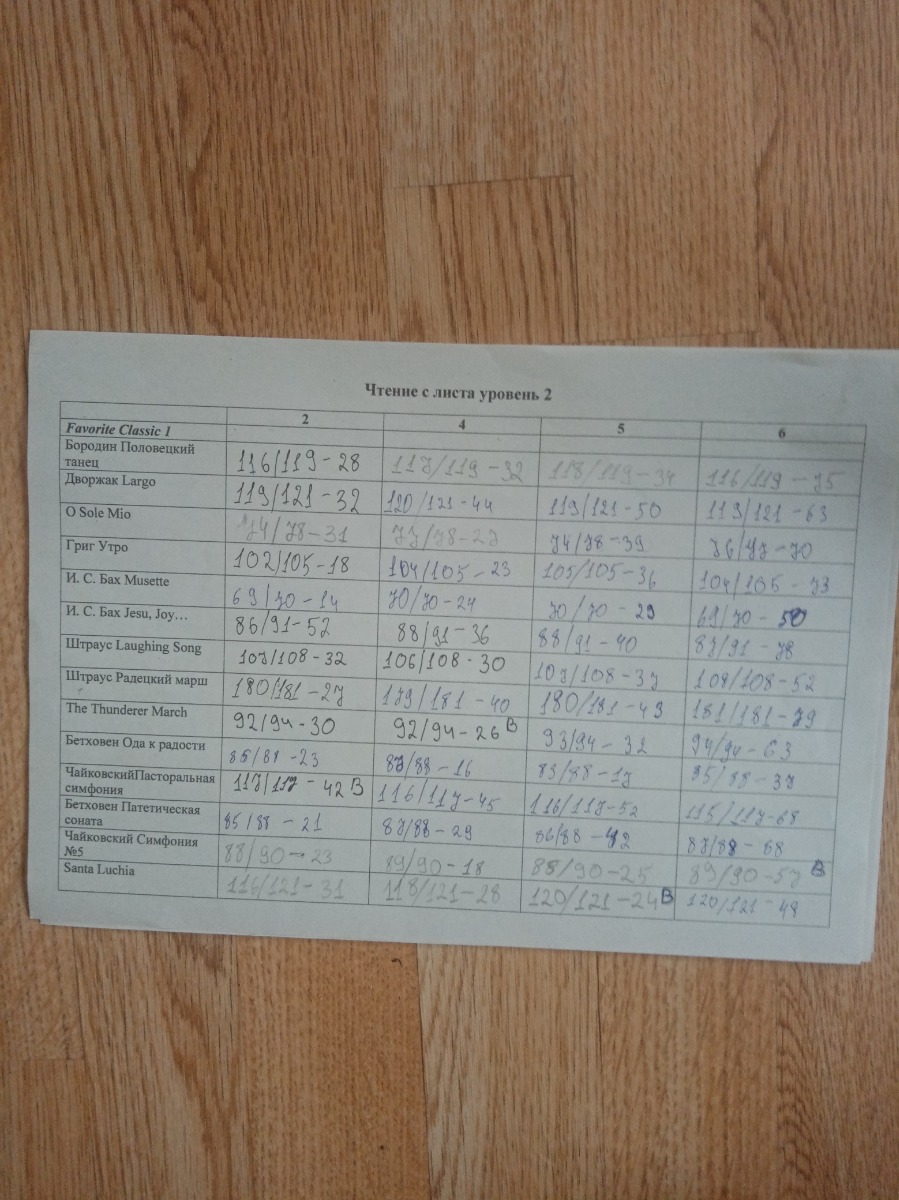 Чтение с листа уровень 2
2 4 5 6
Favorite Classic 1
Бородин Половецкий танец 116/119 - 28 117/119 - 32 118/119 - 34 116/119 - 75
Дворжак Largo 119/121 - 32 120/121 - 44 119/121 - 50 119/121 - 63
O Sole Mio 74/78 - 31 77/78 - 27 74/78 - 39 - 70
Григ Утро 102/105 - 18 104/105 - 23 105/105 - 36 104/105 - 73
И. С. Бах Musette 69/70 - 14 70/70 - 24 70/70 - 29 69/70 - 50
И. С. Бах Jesu, Joy… 86/91 - 52 88/91 - 36 88/91 - 40 87/91 - 78
Штраус Laughing Song 107/108 - 32 106/108 - 30 107/108 - 37 108/108 - 52
Штраус Радецкий марш 180/181 - 27 179/181 - 40 180/181 - 43 181/181 - 79
The Thunderer March 92/94 - 30 92/94 - 26 В 93/94 - 32 94/94 - 63
Бетховен Ода к радости - 23 87/88 - 16 83/88 - 17 85/88 - 37
ЧайковскийПасторальная симфония 117/117 - 42 В 116/117 - 45 116/117 - 52 115/117 - 68
Бетховен Патетическая соната 85/88 - 21 87/88 - 29 86/88 - 42 87/88 - 68
Чайковский Симфония №5 88/90 - 23 89/90 - 18 88/90 - 25 89/90 - 57 В
Santa Luchia 116/121 - 31 118/121 - 28 120/121 - 24 В 120/121 - 48